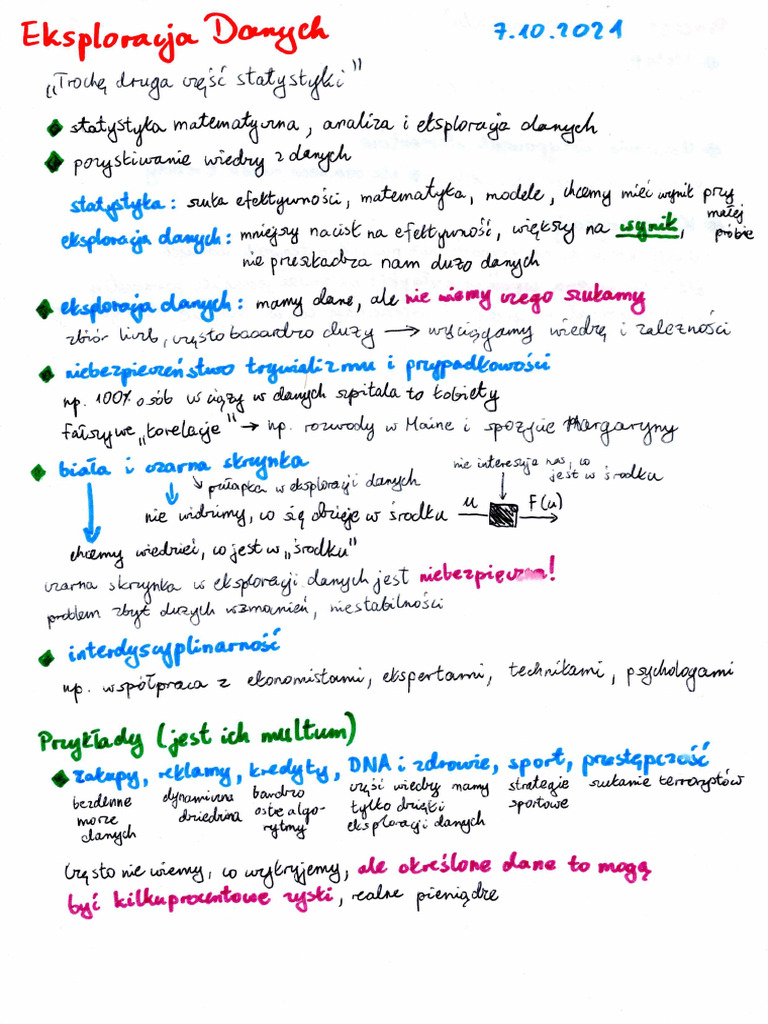 Eksploracja Danych 7.10.2021
„Trochę druga część statystyki”
statystyka matematyczna, analiza i eksploracja danych
pozyskiwanie wiedzy z danych
statystyka: szuka efektywności, matematyka, modele, chcemy mieć wynik przy małej próbie
eksploracja danych: mniejszy nacisk na efektywność, większy na wynik,
nie przeszkadza nam dużo danych
eksploracja danych: mamy dane, ale nie wiemy czego szukamy
zbiór liczb, często baaardzo duży → wyciągamy wiedzę i zależności
niebezpieczeństwo trywializmu i przypadkowości
np. 100% osób w ciąży w danych szpitala to kobiety
fałszywe „korelacje” → np. rozwody w Maine i spożycie Margaryny
biała i czarna skrzynka
pułapka w eksploracji danych
nie interesuje nas, co
jest w środku
nie widzimy, co się dzieje w środku u F(u)
chcemy wiedzieć, co jest w „środku”
czarna skrzynka w eksploracji danych jest niebezpieczna!
problem zbyt dużych wzmonień, niestabilności
interdyscyplinarność
np. współpraca z ekonomistami, ekspertami, technikami, psychologami
Przykłady (jest ich multum)
zakupy, reklamy, kredyty, DNA i zdrowie, sport, przestępczość
bezdenne morze danych
dynamiczna dziedzina
bardzo ostre algorytmy
część wiedzy mamy tylko dzięki eksploracji danych
strategie sportowe
szukanie terrorystów
Często nie wiemy, co wykryjemy, ale określone dane to mogą
być kilkuprocentowe zyski, realne pieniądze